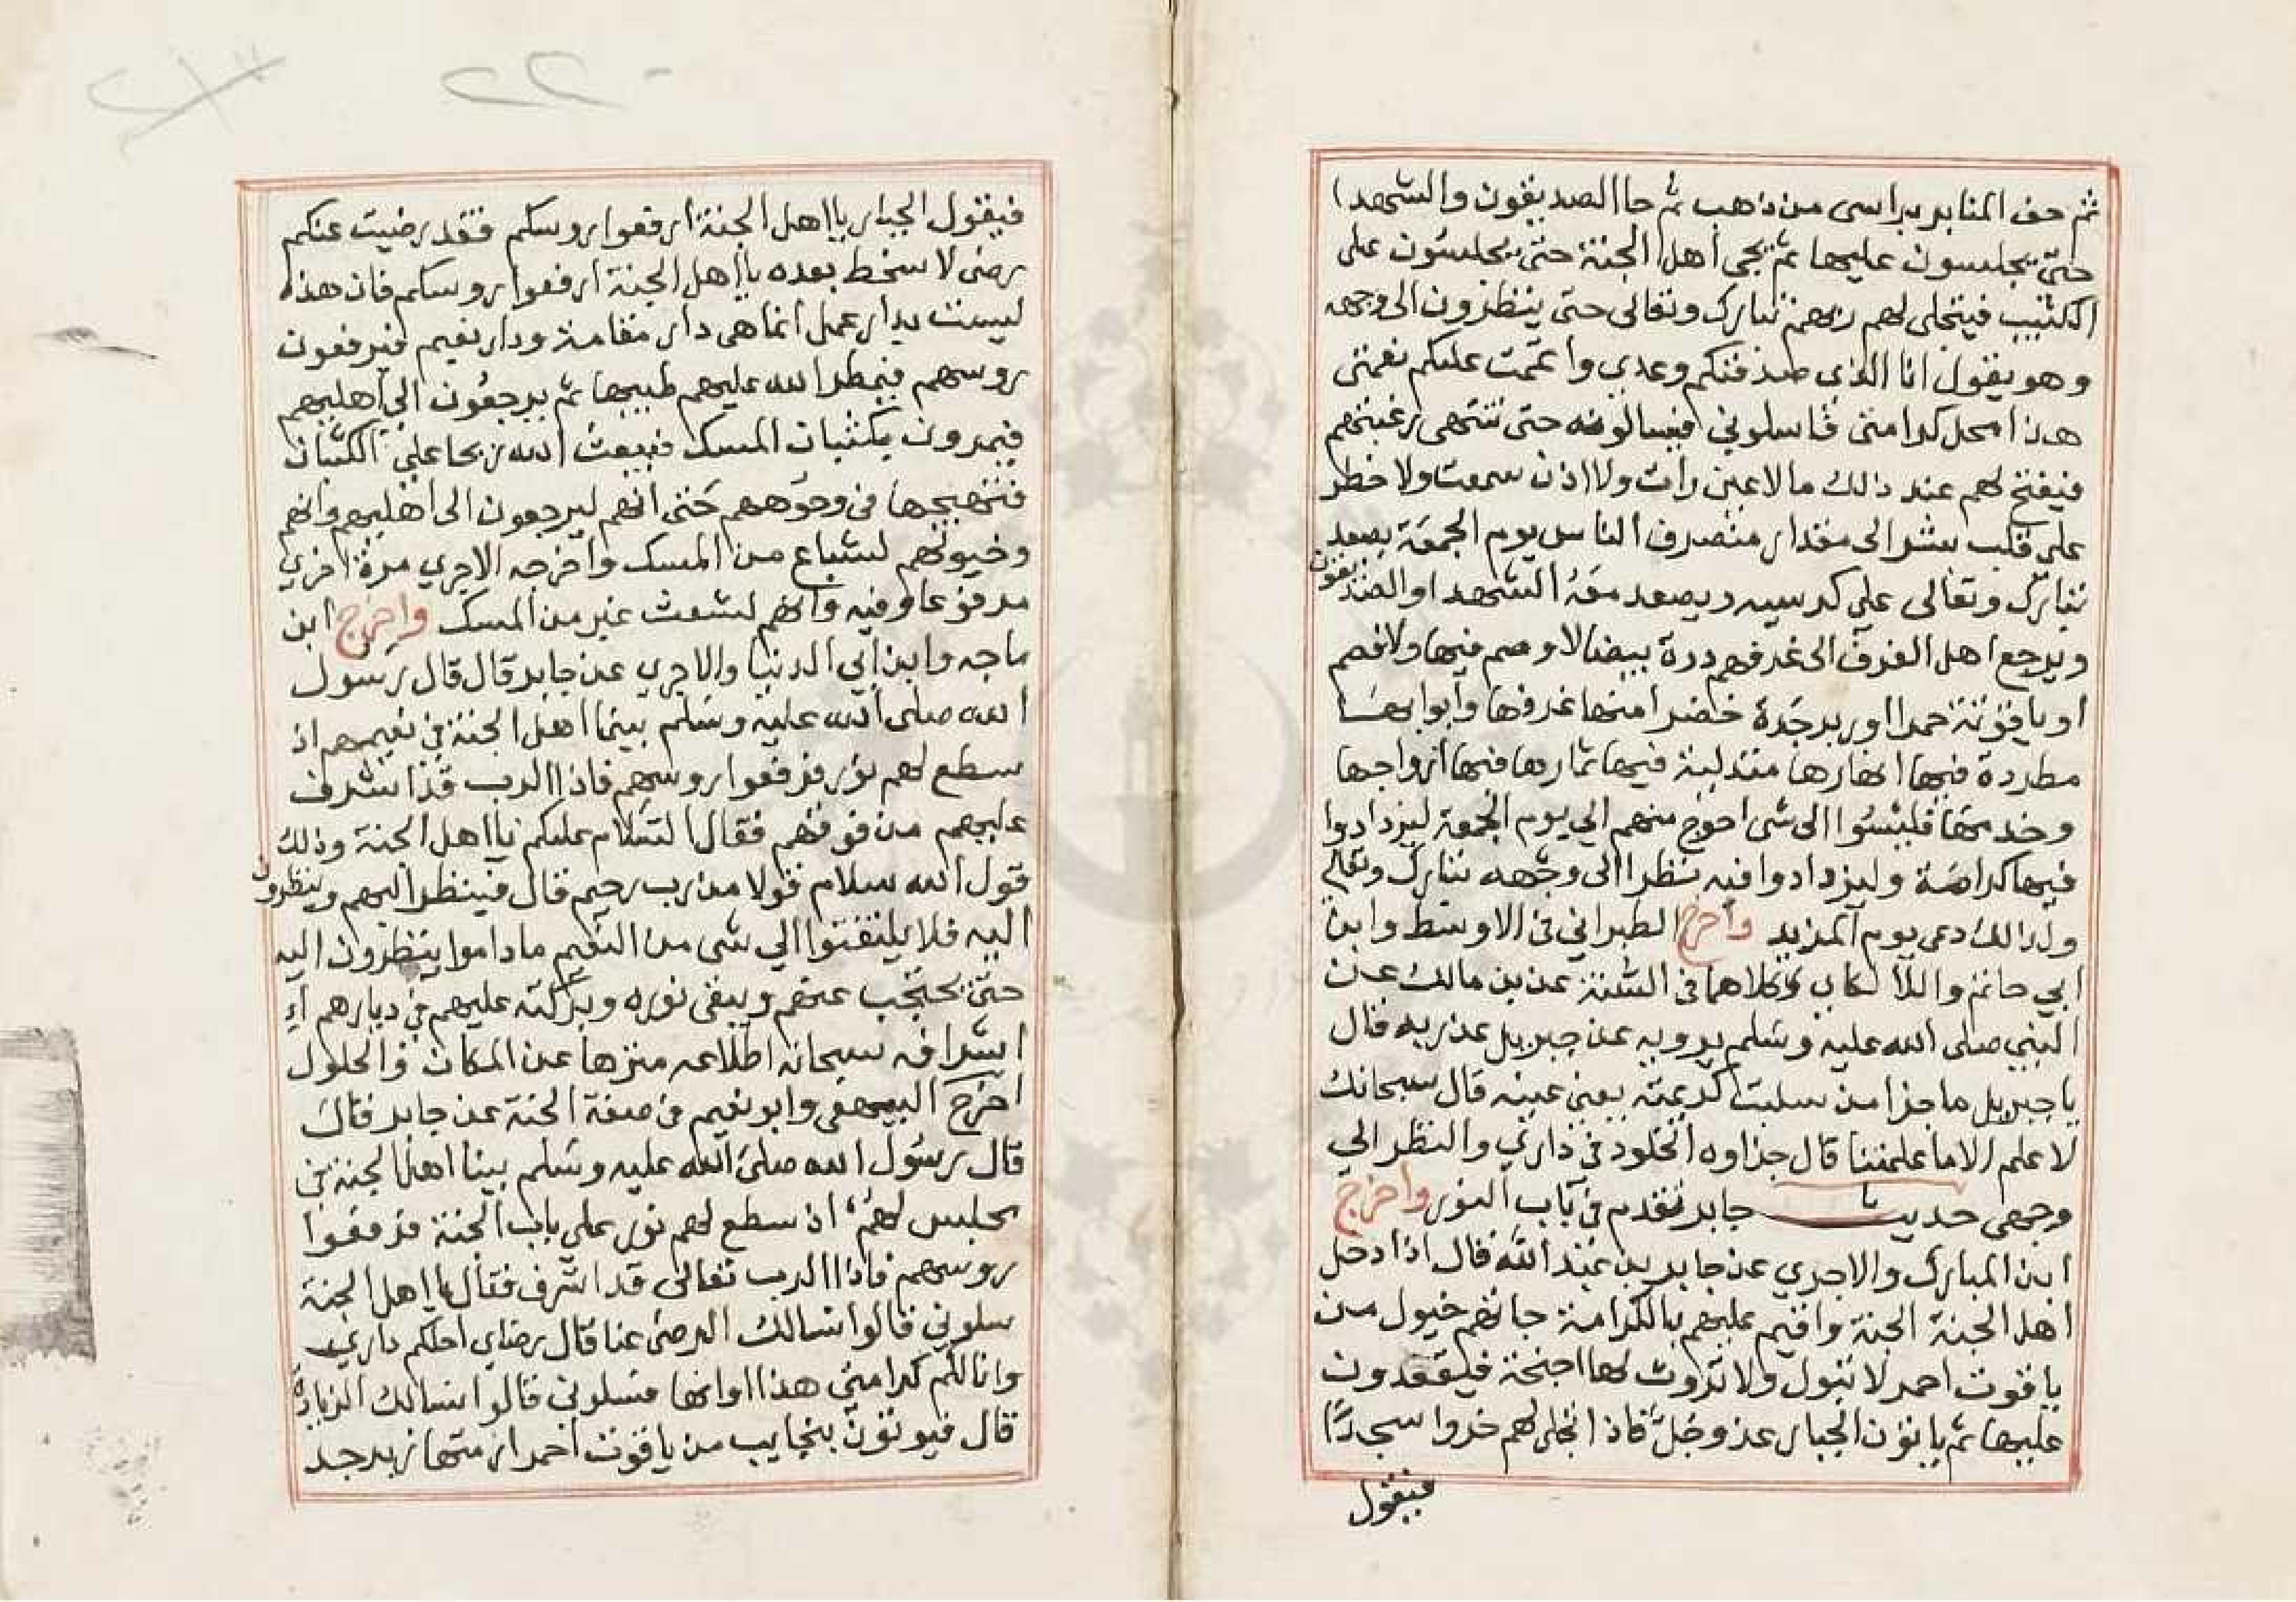 ثم حف المنابر بكراسى من ذهب ثم جا الصديقون والشهدا
حتى يجلسون عليها ثم يجى أهل الجنة حتى يجلسون على
الكثيب فيتجلى لهم ربهم تبارك وتعالى حتى ينظرون الى وجهه
وهو يقول انا الذى صدقتكم وعدي وأتممت عليكم نعمتى
هذا محل كرامتى فاسلوني فيسالونه حتى تنتهى رغبتهم
فيفتح لهم عند ذلك ما لا عين رات ولا اذن سمعت ولا خطر
على قلب بشر الى مقدار منصرف الناس يوم الجمعة يصعد
تبارك وتعالى على كرسيه ويصعد معه الشهدا والصديقون
ويرجع اهل الغرف الى غرفهم درة بيضا لا وصم فيها ولا فصم
او ياقوتة حمرا او زبرجدة خضرا منها غرفها وأبوابها
مطردة فيها انهارها متدلية فيها ثمارها فيها أزواجها
وخدمها فليسوا الى شى احوج منهم الي يوم الجمعة ليزدادوا
فيها كرامة وليزدادوا فيه نظرا الى وجهه تبارك وتعالى
ولذالك دعى يوم المزيد وأخرج الطبراني فى الاوسط وابن
ابي حاتم واللآلكاي وكلاهما فى السنة عن بن مالك عن
النبي صلى الله عليه وسلم يرويه عن جبريل عن ربه قال
يا جبريل ما جزا من سلبت كريمته يعني عينيه قال سبحانك
لا علم الا ما علمتنا قال جزاوه الخلود فى داري والنظر الي
وجهى حديث جابر تقدم في باب النور واخرج
ابن المبارك والاجري عن جابر بن عبد الله قال اذا دخل
اهل الجنة الجنة واقيم عليهم بالكرامة جاتهم خيول من
ياقوت احمر لا تبول ولا تروث لها اجنحة فيقعدون
عليها ثم ياتون الجبار عز وجل فاذا تجلى لهم خروا سجدًا
فيقول
فيقول الجبار يا اهل الجنة ارفعوا روسكم فقد رضيت عنكم
رضى لا سخط بعده يا أهل الجنة ارفعوا روسكم فان هذه
ليست بدار عمل انما هى دار مقامة ودار نعيم فيرفعون
روسهم فيمطر الله عليهم طيبها ثم يرجعون الي أهليهم
فيمرون بكثبان المسك فيبعث الله ريحا على الكثبان
فتهيجها فى وجوههم حتى انهم ليرجعون الى اهليهم وانهم
وخيولهم لشباع من المسك واخرجه الاجري مرة اخري
مرفوعا وفيه وانهم لشعث غبر من المسك واخرج ابن
ماجه وابن ابي الدنيا والاجري عن جابر قال قال رسول
الله صلى الله عليه وسلم بينما اهل الجنة في نعيمهم اذ
سطع لهم نور فرفعوا روسهم فاذا الرب قد اشرف
عليهم من فوقهم فقال السلام عليكم يا اهل الجنة وذلك
قول الله سلام قولا من رب رحيم قال فينظر اليهم وينظرون
اليه فلا يلتفتوا الي شى من النعيم ما داموا ينظرون اليه
حتى يحتجب عنهم ويبقى نوره وبركته عليهم في ديارهم اي
اشرافه سبحانه اطلاعه منزها عن المكان والحلول
اخرج البيهقى وابو نعيم فى صفة الجنة عن جابر قال
قال رسول الله صلى الله عليه وسلم بينا اهل الجنة فى
مجلس لهم اذ سطع لهم نور على باب الجنة فرفعوا
روسهم فاذا الرب تعالى قد اشرف فقال يا اهل الجنة
سلوني قالوا نسالك الرضى عنا قال رضاي احلكم داري
وانالكم كرامتي هذا اوانها فسلوني قالوا نسالك الزيادة
قال فيوتون بنجايب من ياقوت احمر ازمتها زبرجد